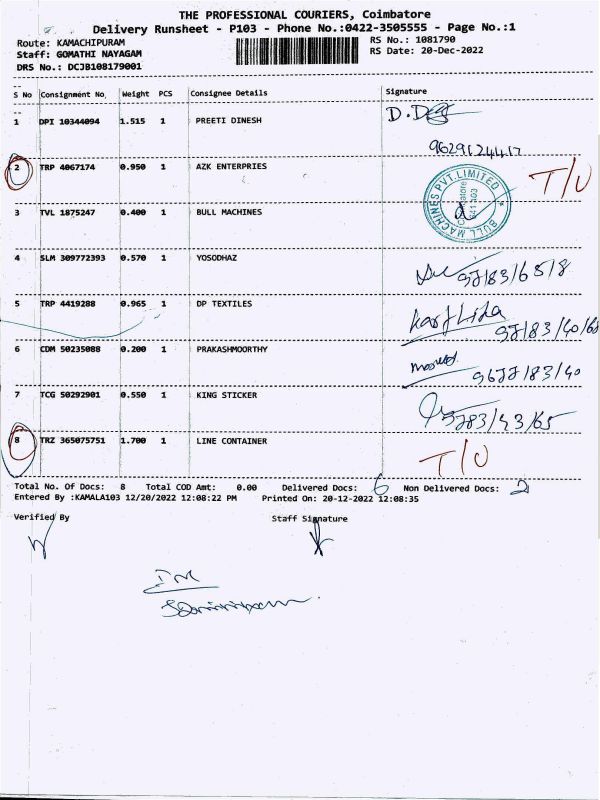 THE PROFESSIONAL COURIERS, Coimbatore
Delivery Runsheet - P103 - Phone No.:0422-3505555 - Page No.:1
Route: KAMACHIPURAM RS No.: 1081790
Staff: GOMATHI NAYAGAM RS Date: 20-Dec-2022
DRS No.: DCJB108179001
S No Consignment No. Weight PCS Consignee Details Signature
1 DPI 10344094 1.515 1 PREETI DINESH
9629124417
2 TRP 4067174 0.950 1 AZK ENTERPRIES T/U
BULL MACHINES PVT.LIMITED
3 TVL 1875247 0.400 1 BULL MACHINES
4 SLM 309772393 0.570 1 YOSODHAZ
5 TRP 4419288 0.965 1 DP TEXTILES
6 CDM 50235088 0.200 1 PRAKASHMOORTHY
7 TCG 50292901 0.550 1 KING STICKER
8 TRZ 365075751 1.700 1 LINE CONTAINER T/U
Total No. Of Docs: 8 Total COD Amt: 0.00 Delivered Docs: 6 Non Delivered Docs: 2
Entered By :KAMALA103 12/20/2022 12:08:22 PM Printed On: 20-12-2022 12:08:35
Verified By Staff Signature